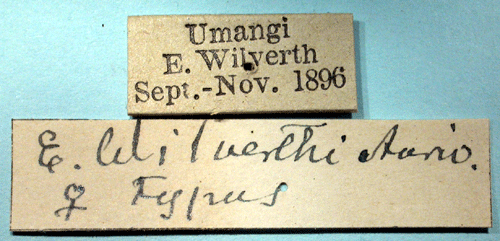 Umangi
E. Wilverth
Sept.-Nov. 1896
E. Wilverthi Auriv.
♀ Typus